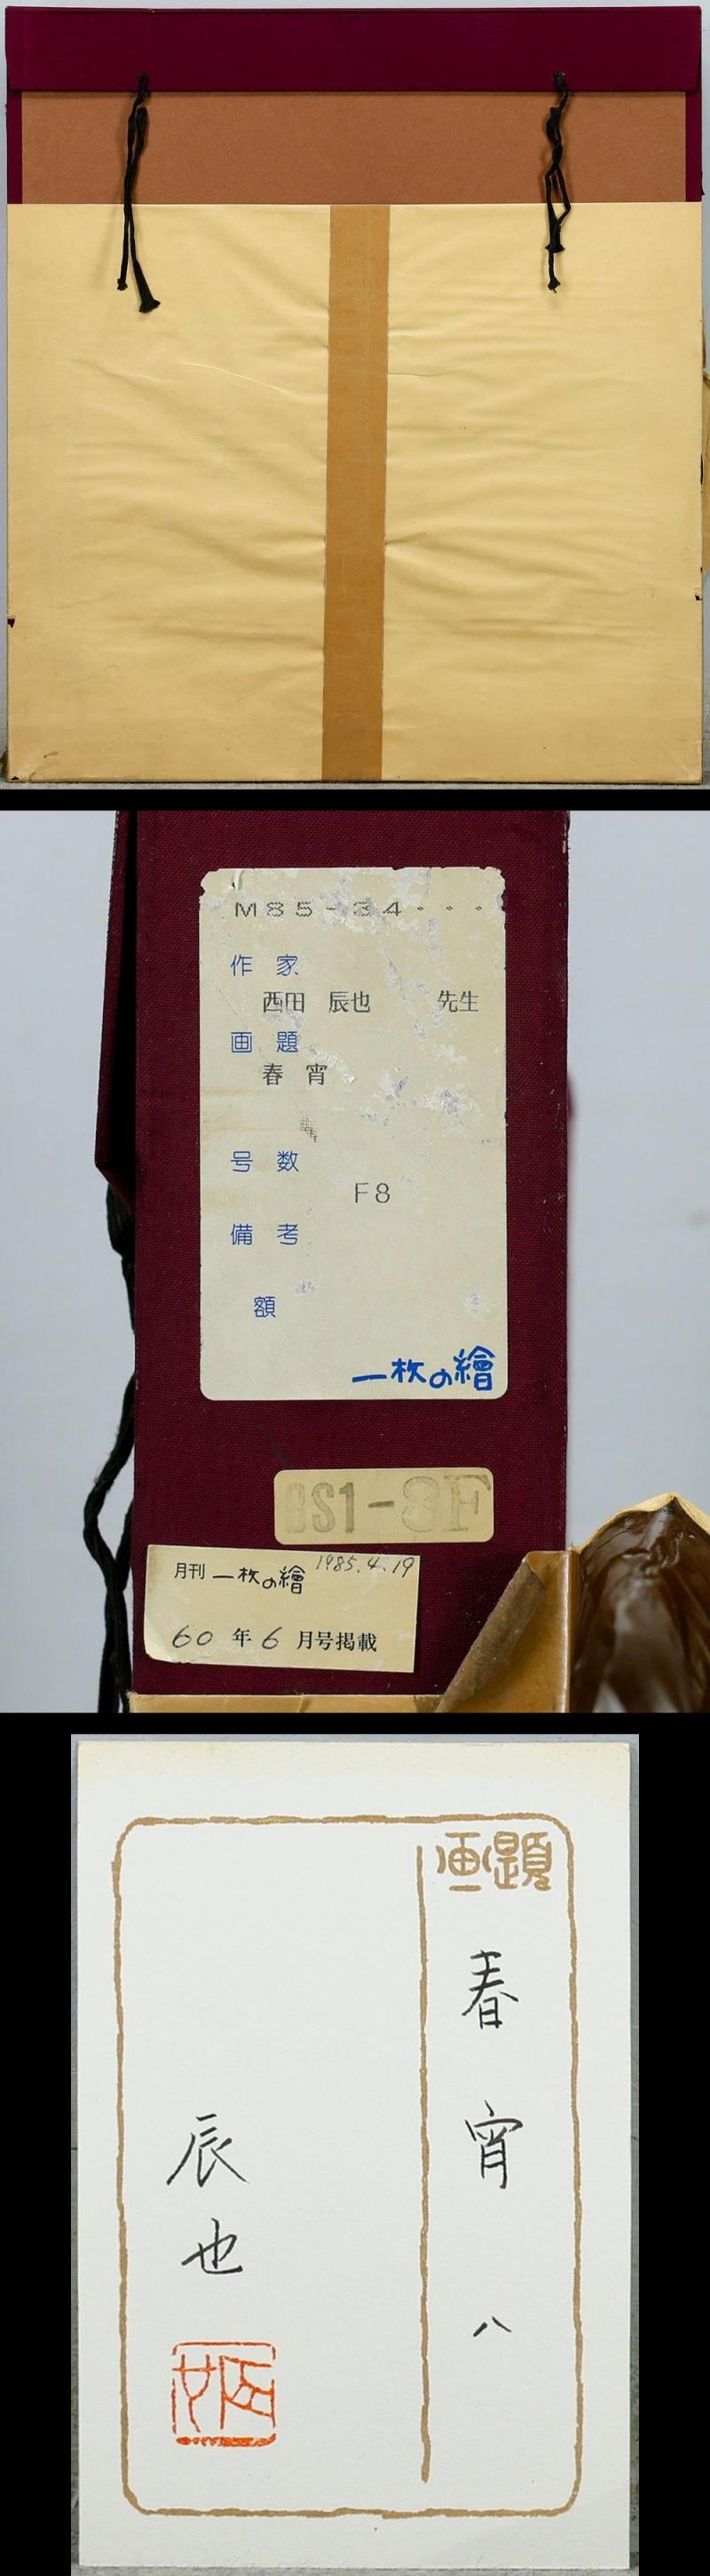 M85-34
作家
西田 辰也 先生
画題
春宵
号数
F8
備考
額
一枚の繪
S1-8F
月刊 一枚の繪 1985.4.19
60年6月号掲載
画題
春宵 八
辰也